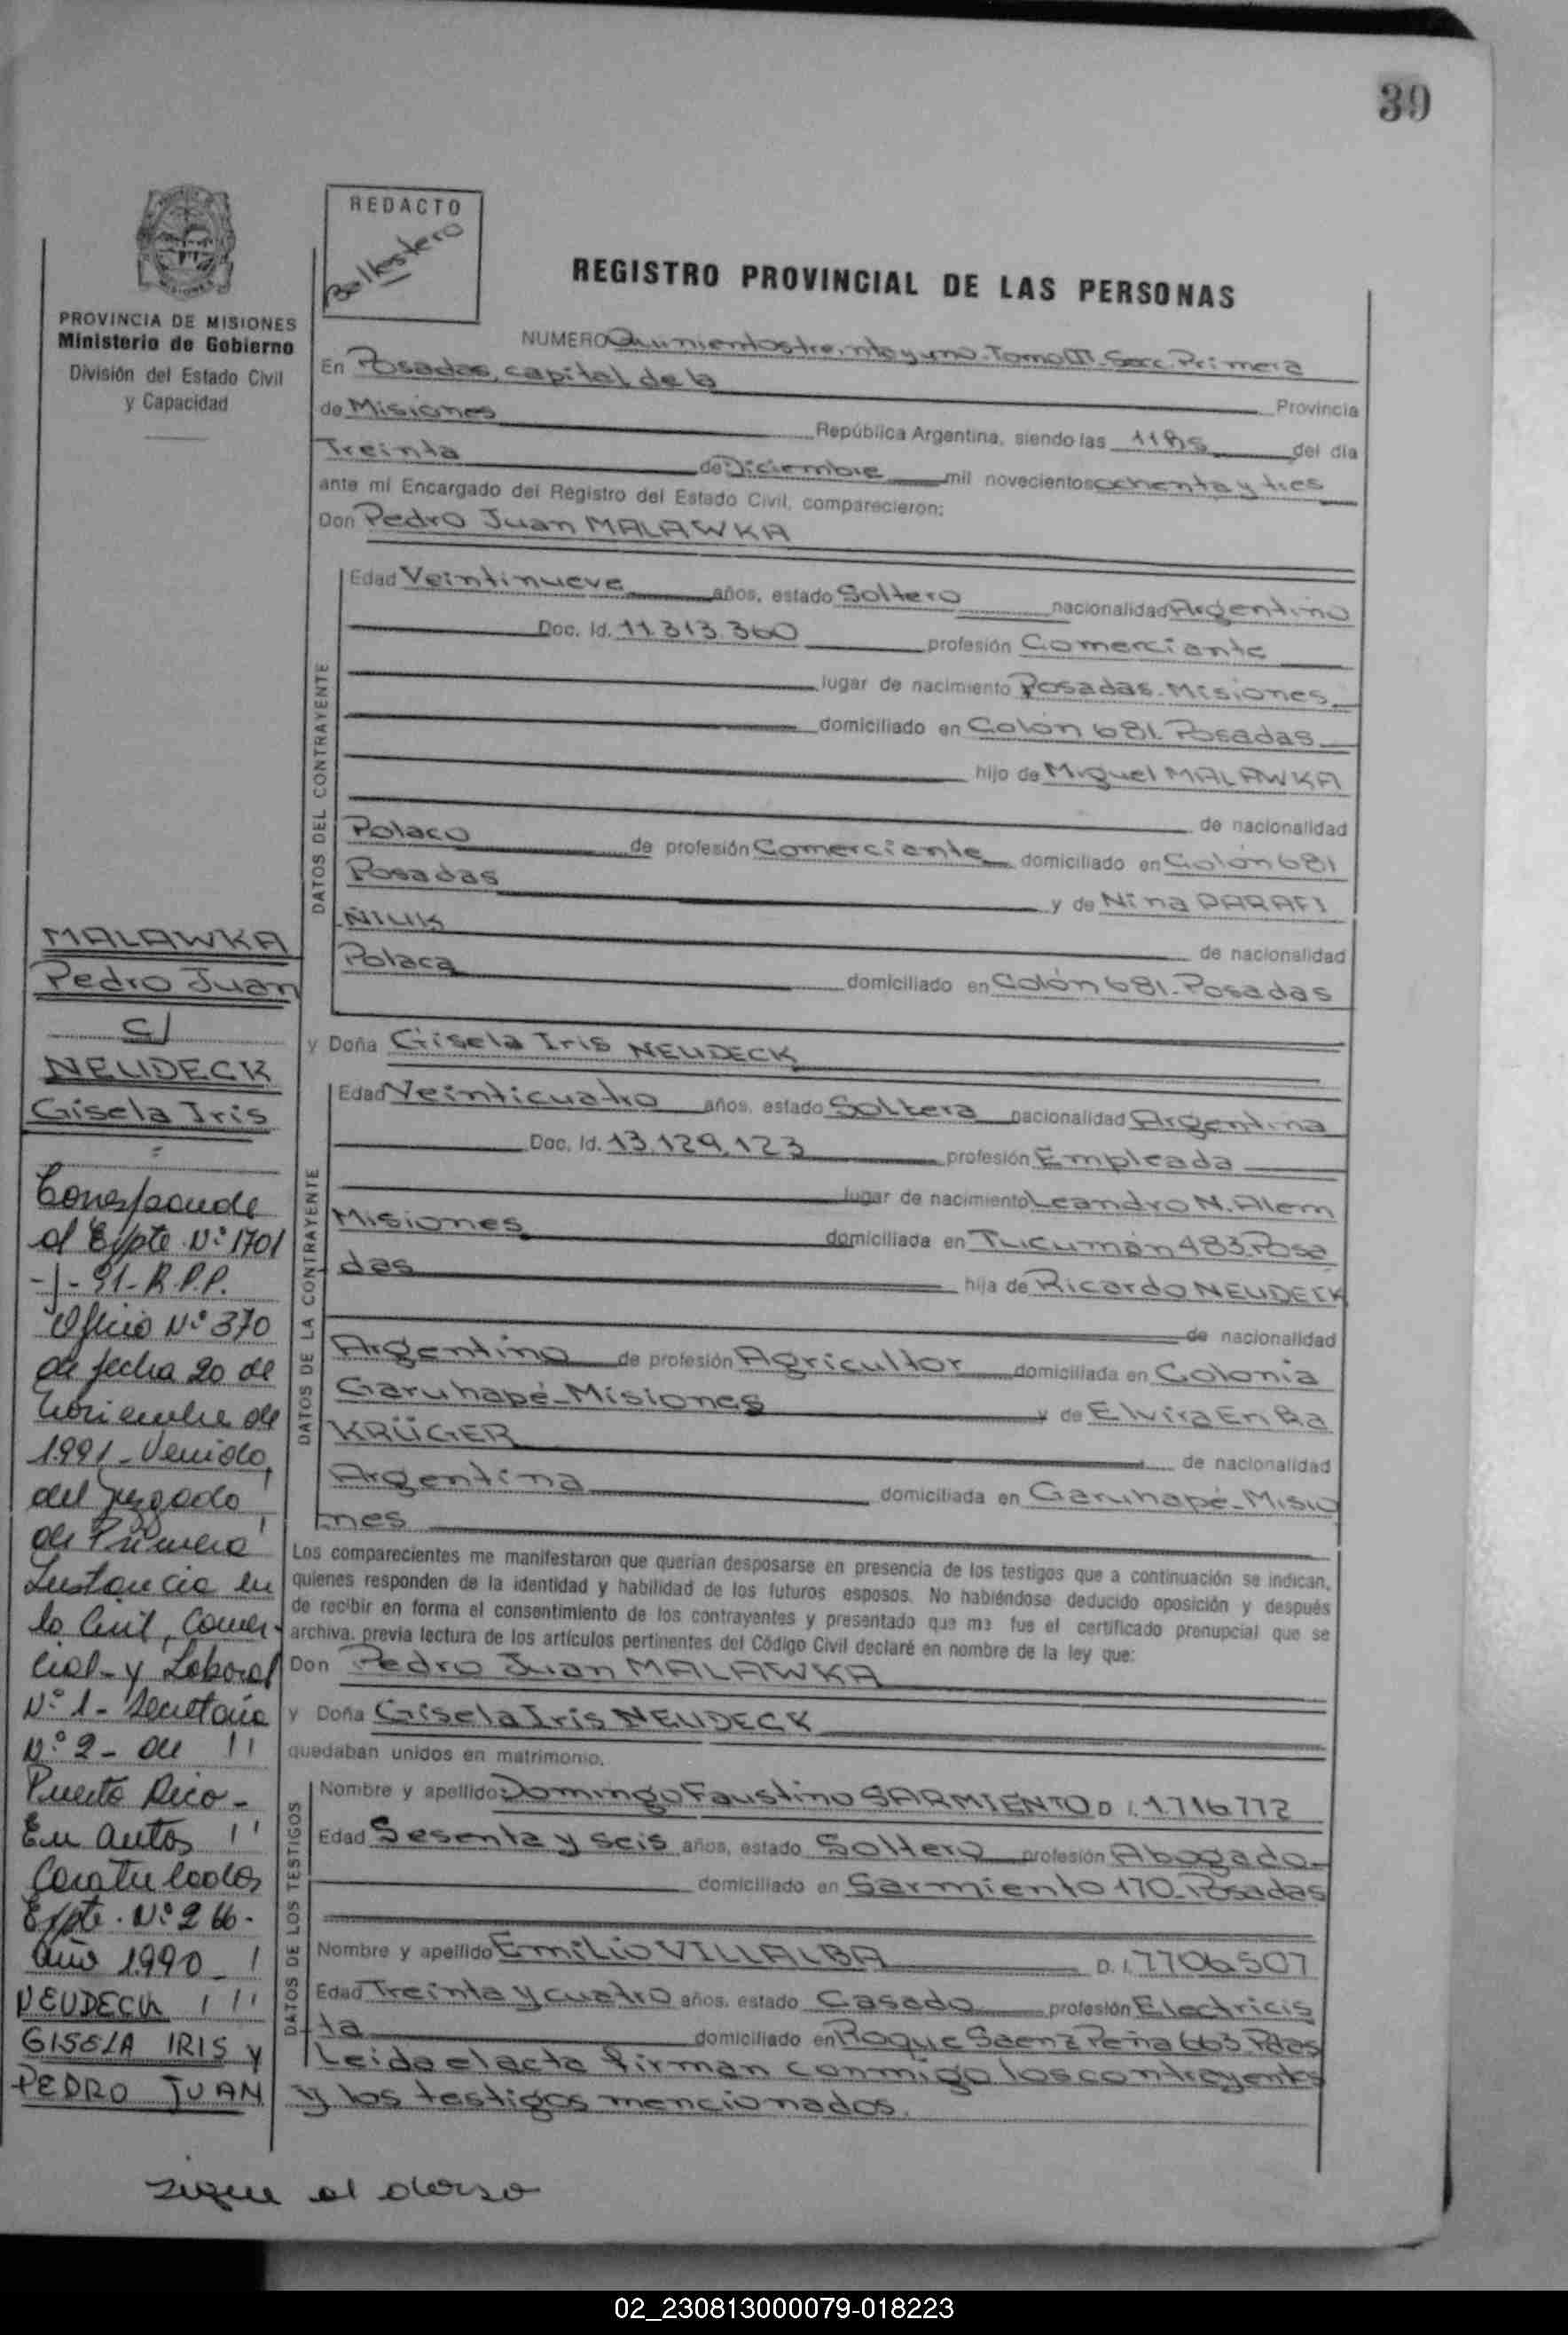 39
REDACTO
Ballestero
PROVINCIA DE MISIONES
Ministerio de Gobierno
División del Estado Civil
y Capacidad
REGISTRO PROVINCIAL DE LAS PERSONAS
NUMERO Quinientostreintayuno. Tomo III. Secc. Primera
En Posadas, capital de la Provincia
de Misiones República Argentina, siendo las del día
Treinta de Diciembre mil novecientos ochenta y tres
ante mi Encargado del Registro del Estado Civil, comparecieron:
Don Pedro Juan MALAWKA
DATOS DEL CONTRAYENTE
Edad Veintinueve años, estado Soltero nacionalidad Argentino
Doc. Id. 11.313.360 profesión Comerciante
lugar de nacimiento Posadas. Misiones
domiciliado en Colón 681. Posadas
hijo de Miguel MALAWKA
de nacionalidad
Polaco de profesión Comerciante domiciliado en Colón 681
Posadas y de Nina PARAFI
ÑIUK de nacionalidad
Polaca domiciliado en Colón 681. Posadas
y Doña Gisela Iris NEUDECK
DATOS DE LA CONTRAYENTE
Edad Veinticuatro años, estado Soltera nacionalidad Argentina
Doc. Id. 13.129.123 profesión Empleada
lugar de nacimiento Leandro N. Alem
Misiones domiciliada en Tucumán 483. Posa
das hija de Ricardo NEUDECK
de nacionalidad
Argentino de profesión Agricultor domiciliada en Colonia
Garuhapé-Misiones y de Elvira
KRÜGER de nacionalidad
Argentina domiciliada en Garuhapé-Misio
nes
Los comparecientes me manifestaron que querían desposarse en presencia de los testigos que a continuación se indican,
quienes responden de la identidad y habilidad de los futuros esposos. No habiéndose deducido oposición y después
de recibir en forma el consentimiento de los contrayentes y presentado que me fue el certificado prenupcial que se
archiva. previa lectura de los artículos pertinentes del Código Civil declaré en nombre de la ley que:
Don Pedro Juan MALAWKA
y Doña Gisela Iris NEUDECK
quedaban unidos en matrimonio.
DATOS DE LOS TESTIGOS
Nombre y apellido: Domingo Faustino SARMIENTO D. I. 1.716.772
Edad Sesenta y seis años, estado Soltero profesión Abogado
domiciliado en Sarmiento 170. Posadas
Nombre y apellido Emilio VILLALBA D. I. 7706507
Edad Treinta y cuatro años, estado Casado profesión Electricis
ta domiciliado en Roque Saenz Peña 663. Pdas
Leida el acta firman conmigo los contrayentes
y los testigos mencionados.
MALAWKA
Pedro Juan
c/
NEUDECK
Gisela Iris
Corresponde
al Expte. Nº 1701
-J-91-R.P.P.
Oficio Nº 370
de fecha 20 de
Noviembre de
1991 - Venido
del Juzgado
de Primera
Instancia en
lo Civil, Comer-
cial y Laboral
Nº 1 - Secretaria
Nº 2 - de
Puerto Rico -
En autos
Caratulados
Expte. Nº 266.
Año 1990
NEUDECK
GISELA IRIS y
PEDRO JUAN
sigue al dorso
02_230813000079-018223